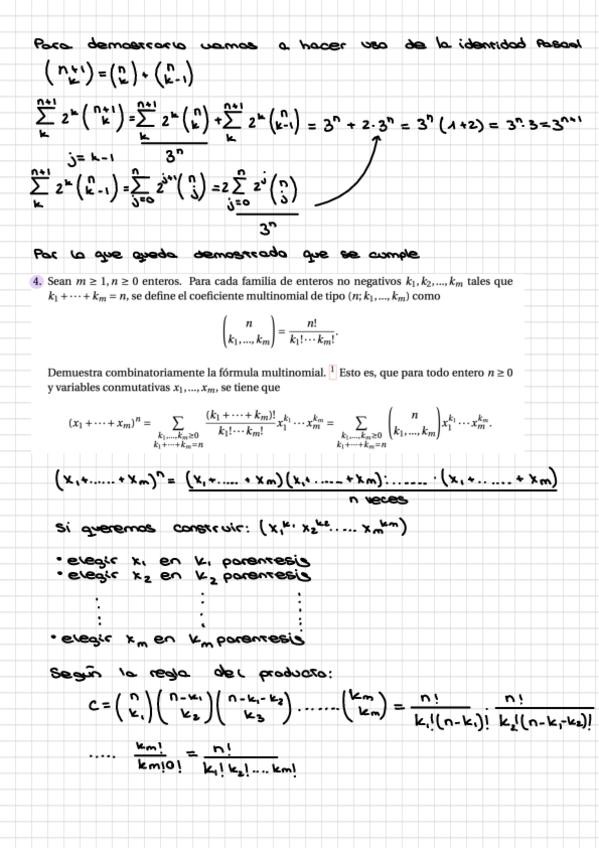 Para demostrarlo vamos a hacer uso de la identidad Pascal
(n+1 k) = (n k) + (n k-1)
∑_k^{n+1} 2^k (n+1 k) = ∑_k^{n+1} 2^k (n k) + ∑_k^{n+1} 2^k (n k-1) = 3^n + 2·3^n = 3^n (1+2) = 3^n·3 = 3^{n+1}
3^n
j = k-1
∑_k^{n+1} 2^k (n k-1) = ∑_{j=0}^n 2^{j+1} (n j) = 2 ∑_{j=0}^n 2^j (n j)
3^n
Por lo que queda demostrado que se cumple
4. Sean m ≥ 1, n ≥ 0 enteros. Para cada familia de enteros no negativos k₁, k₂, ..., k_m tales que
k₁ + ··· + k_m = n, se define el coeficiente multinomial de tipo (n; k₁, ..., k_m) como
(n k₁, ..., k_m) = n! / k₁! ··· k_m! .
Demuestra combinatoriamente la fórmula multinomial. 1 Esto es, que para todo entero n ≥ 0
y variables conmutativas x₁, ..., x_m, se tiene que
(x₁ + ··· + x_m)^n = ∑_{k₁,...,k_m≥0 k₁+···+k_m=n} (k₁ + ··· + k_m)! / k₁! ··· k_m! x₁^{k₁} ··· x_m^{k_m} = ∑_{k₁,...,k_m≥0 k₁+···+k_m=n} (n k₁, ..., k_m) x₁^{k₁} ··· x_m^{k_m} .
(x₁+......+x_m)^n = (x₁+.....+x_m)(x₁+......+x_m):.......·(x₁+.......+x_m)
n veces
Si queremos construir: (x₁^{k₁} x₂^{k₂}.....x_m^{k_m})
• elegir x₁ en k₁ parentesis
• elegir x₂ en k₂ parentesis
⋮ ⋮ ⋮
• elegir x_m en k_m parentesis
Según la regla del producto:
C = (n k₁)(n-k₁ k₂)(n-k₁-k₂ k₃).......(k_m k_m) = n! / k₁!(n-k₁)! · n! / k₂!(n-k₁-k₂)!
..... k_m! / k_m!0! = n! / k₁! k₂!....k_m!